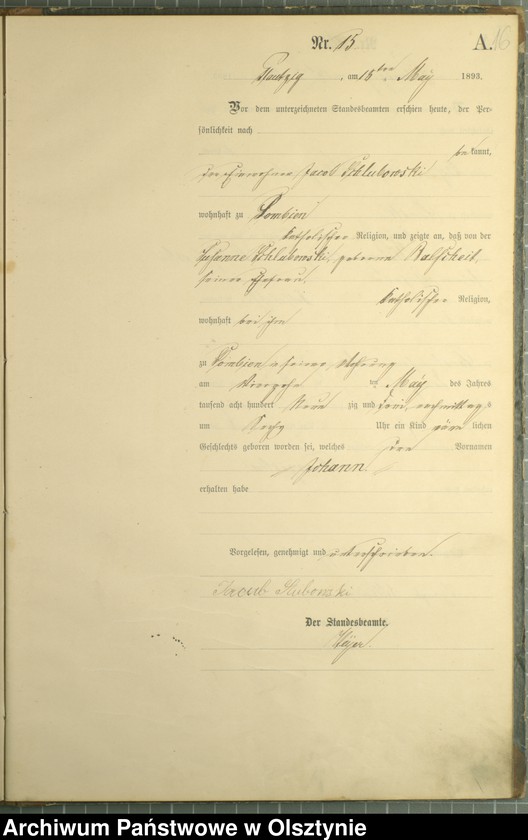 Nr. 15
A. 16
Plautzig, am 15ten May 1893.
Vor dem unterzeichneten Standesbeamten erschien heute, der Per-
sönlichkeit nach
be kannt,
der Einwohner Jacob Schlubowski
wohnhaft zu Dombion
katholischer Religion, und zeigte an, daß von der
Susanne Schlubowski, geborene
seiner Ehefrau,
katholischer Religion,
wohnhaft bei ihm
zu Dombion in seiner Wohnung
am vierzehn ten May des Jahres
tausend acht hundert Neun zig und drei, nachmittags
um sechs Uhr ein Kind männ lichen
Geschlechts geboren worden sei, welches den Vornamen
Johann
erhalten habe
Vorgelesen, genehmigt und unterschrieben.
Jacub Slubowski
Der Standesbeamte.
Archiwum Państwowe w Olsztynie